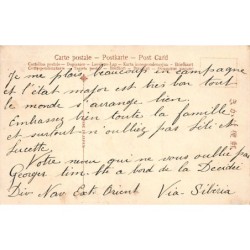 Carte postale - Postkarte - Post Card
Je me plais beaucoup en campagne
et l'état major est très bon tout
le monde s'arrange bien.
Embrassez bien toute la famille
et surtout n'oubliez pas Lili et
Lucette.
Votre neveu qui ne vous oublie pas
Georges à bord de la Decidée
Div Nav Ext Orient Via Sibiria